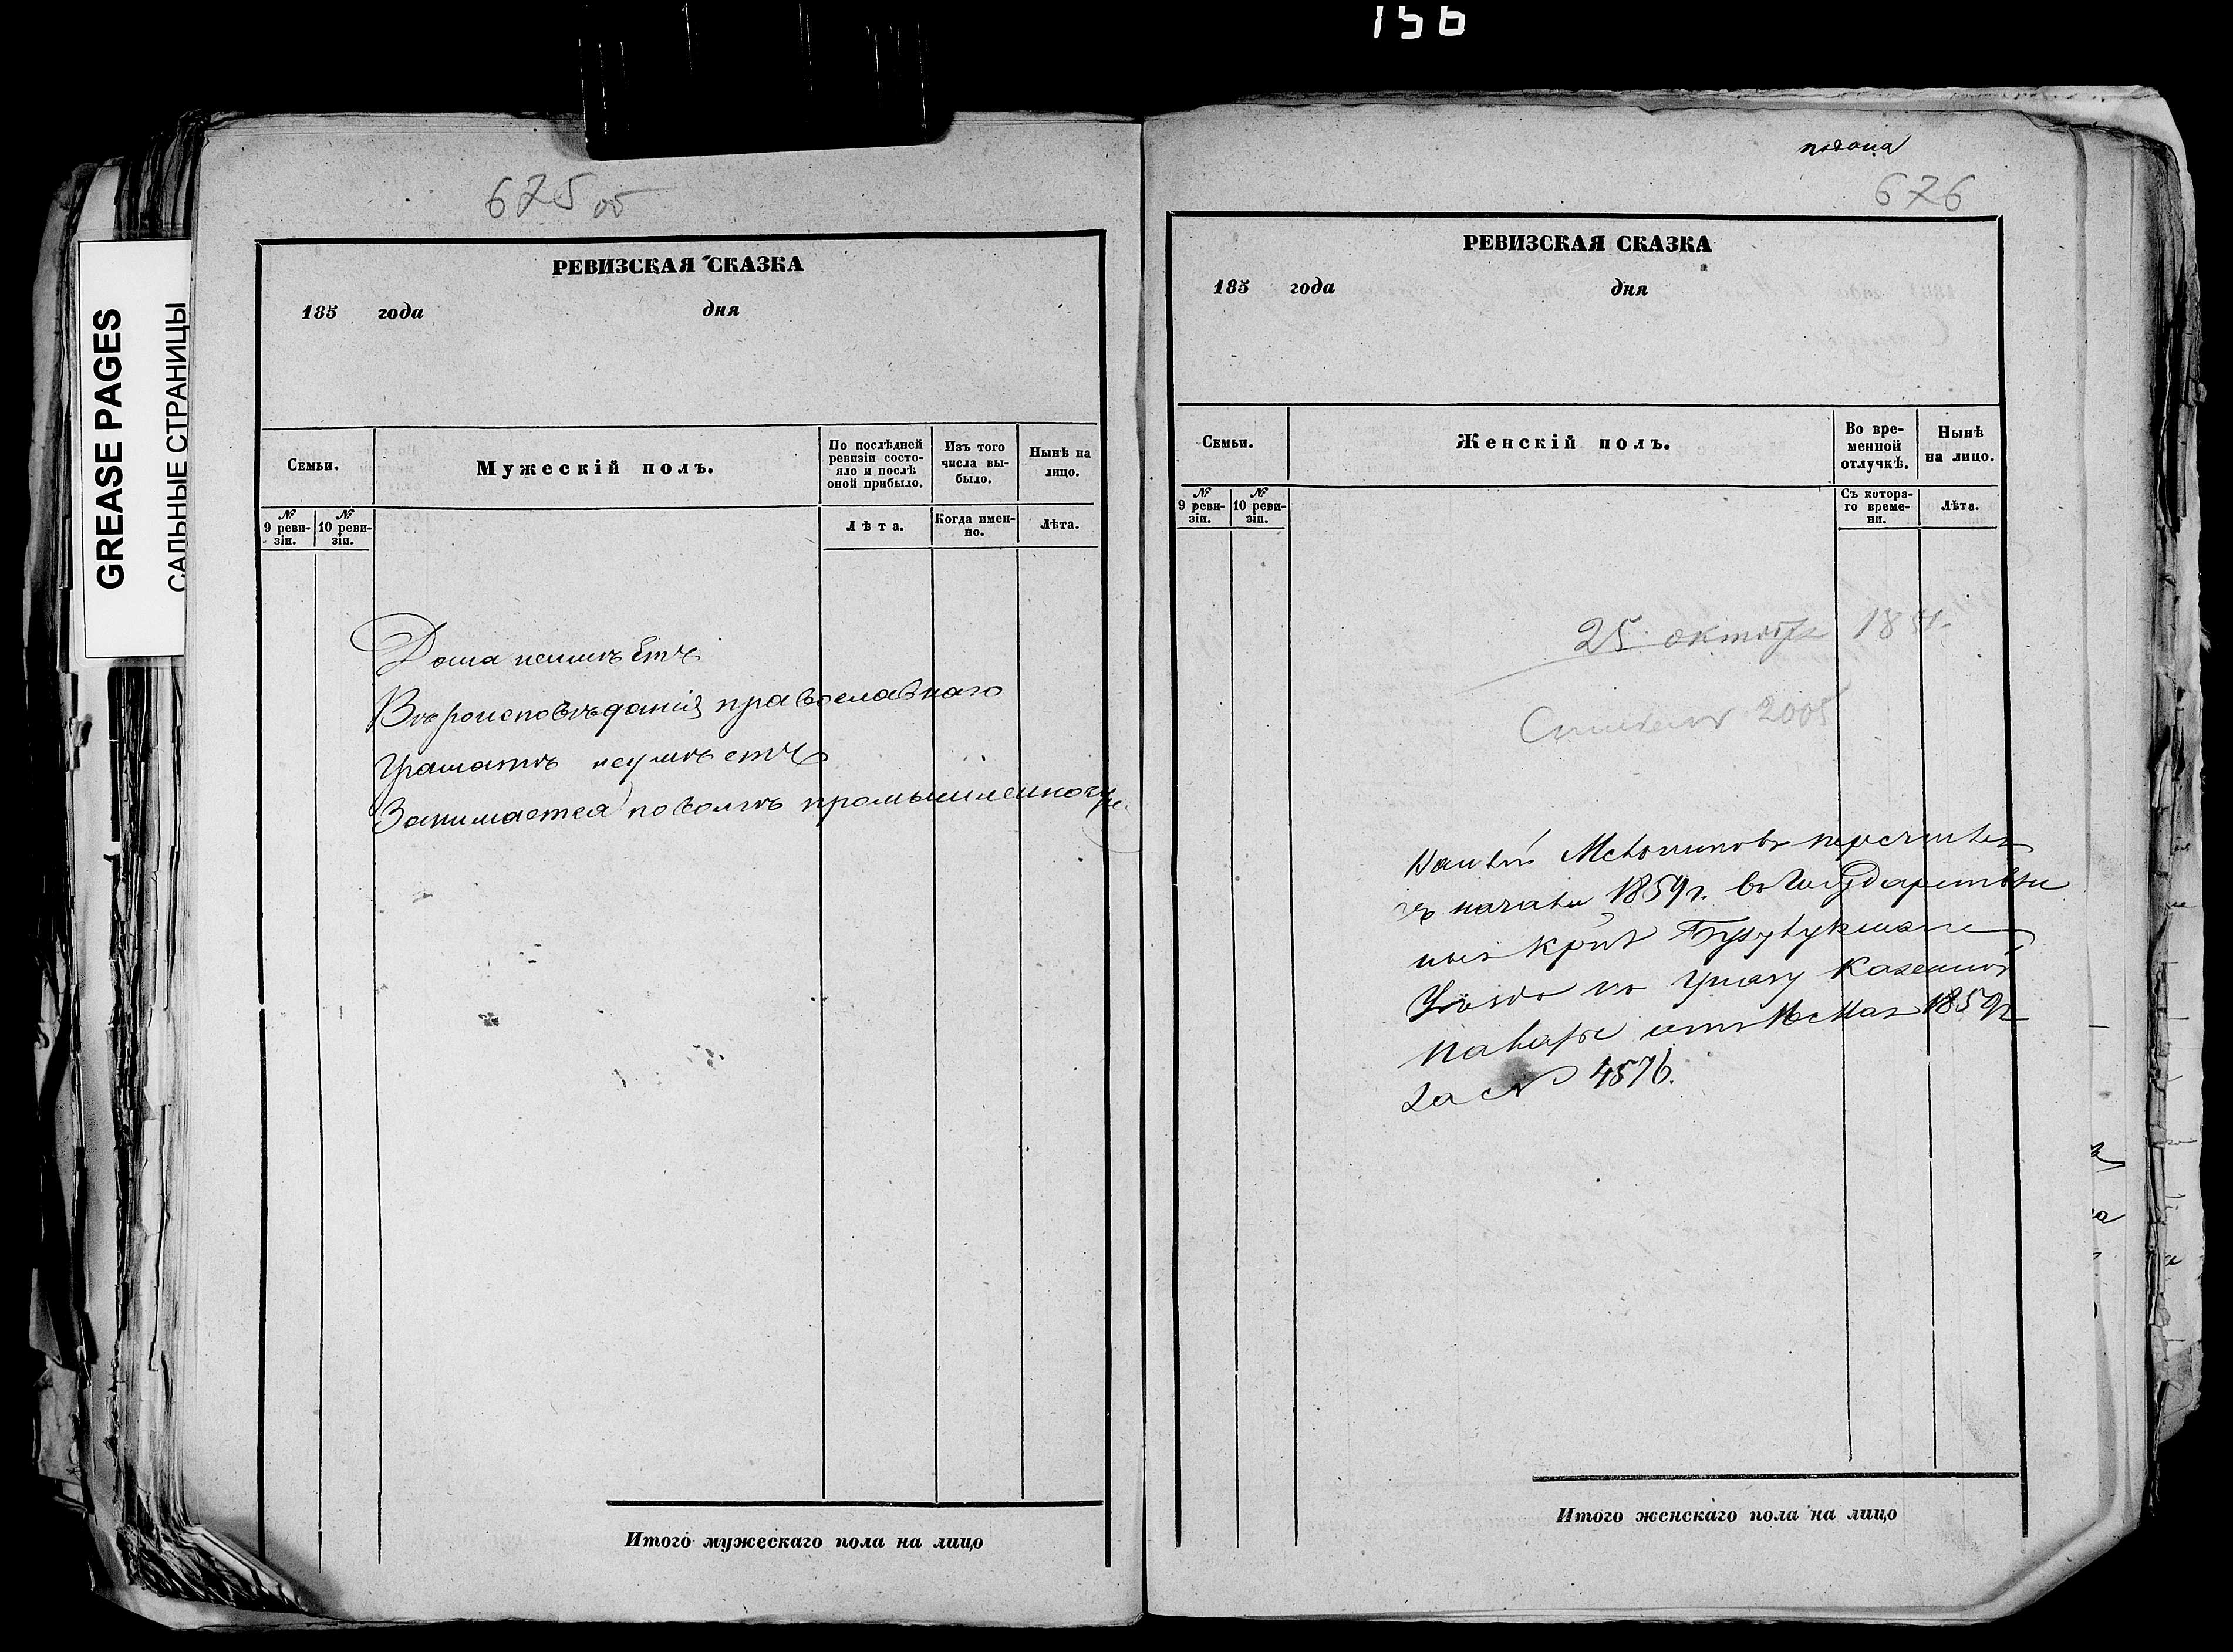 156
GREASE PAGES
САЛЬНЫЕ СТРАНИЦЫ
675 об
РЕВИЗСКАЯ СКАЗКА
185 года дня
Семьи.
Мужескій полъ.
По послѣдней ревизіи состояло и послѣ оной прибыло.
Изъ того числа выбыло.
Нынѣ на лицо.
№ 9 ревизіи.
№ 10 ревизіи.
Лѣта.
Когда именно.
Лѣта.
Дома неимѣетъ
Вѣроисповѣданія православнаго
Грамотѣ неумѣетъ
Занимается поволгѣ промышленностію
Итого мужескаго пола на лицо
676
РЕВИЗСКАЯ СКАЗКА
185 года дня
Семьи.
Женскій полъ.
Во временной отлучкѣ.
Нынѣ на лицо.
№ 9 ревизіи.
№ 10 ревизіи.
Съ котораго времени.
Лѣта.
25 октября 185
2005
перечислен
съ начала 1859 г. въ Государствен
ные Бузулукскаго
Уѣзда по Указу Казенной
Палаты отъ Мая 1859 г
за № 4576.
Итого женскаго пола на лицо